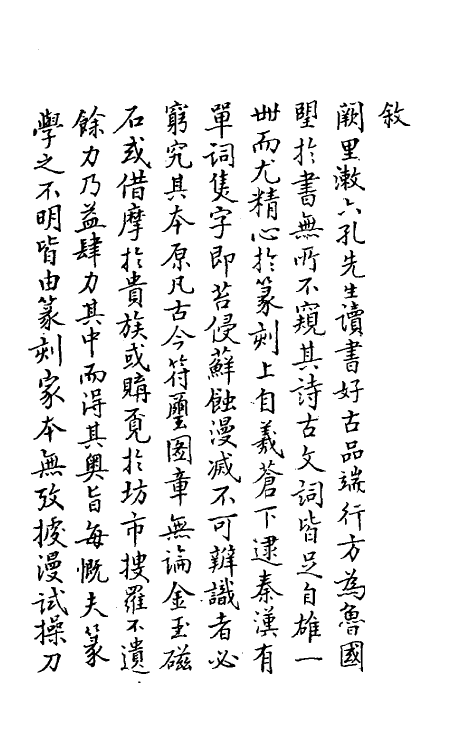 敘
闕里漱六孔先生讀書好古品端行方為魯國
朢於書無所不窺其詩古文詞皆足自雄一
世而尤精心於篆刻上自羲蒼下逮秦漢有
單詞隻字即苔侵蘚蝕漫滅不可辨識者必
窮究其本原凡古今符璽圖章無論金玉磁
石或借摩於貴族或購覔於坊市搜羅不遺
餘力乃益肆力其中而得其奧旨每慨夫篆
學之不明皆由篆刻家本無攷據漫試操刀